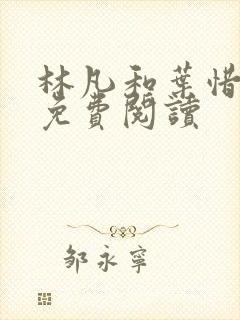 林凡和葉惜
免費閱讀
邹永寧